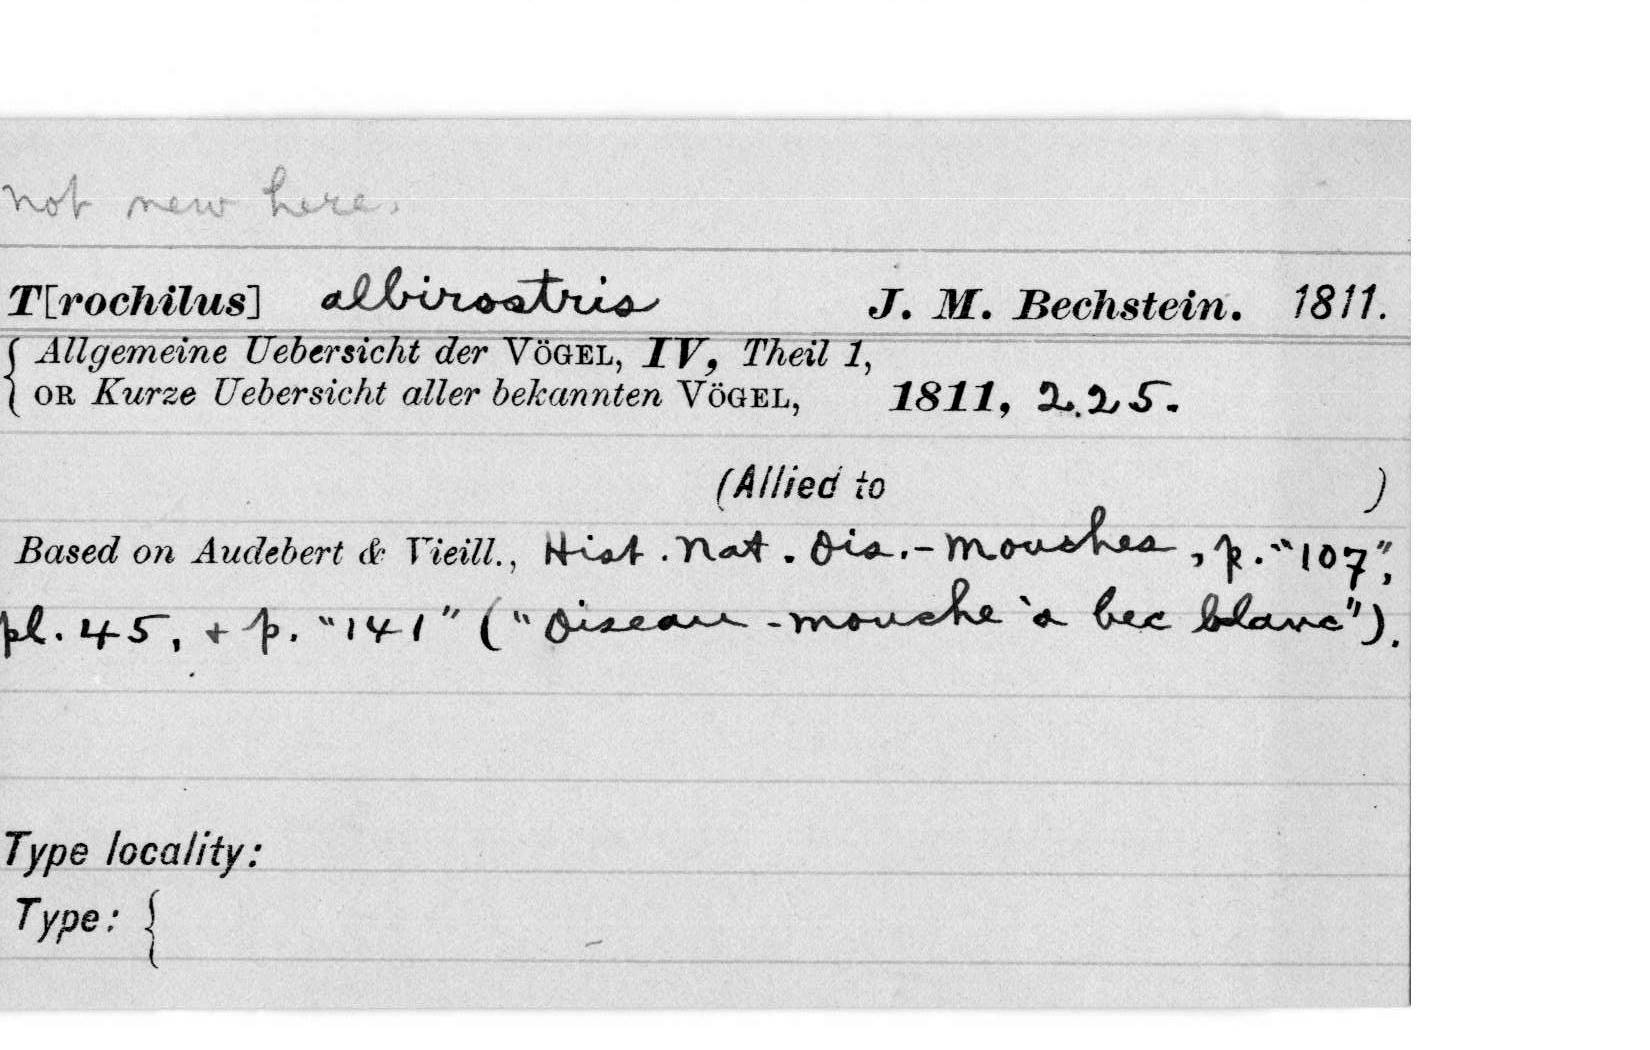 not new here.
T[rochilus] albirostris J. M. Bechstein. 1811.
{ Allgemeine Uebersicht der VÖGEL, IV, Theil 1,
OR Kurze Uebersicht aller bekannten VÖGEL, 1811, 225.
(Allied to )
Based on Audebert & Vieill., Hist. Nat. Ois.-Mouches, p. "107",
pl. 45, + p. "141" ("Oiseau-mouche à bec blanc").
Type locality:
Type: {